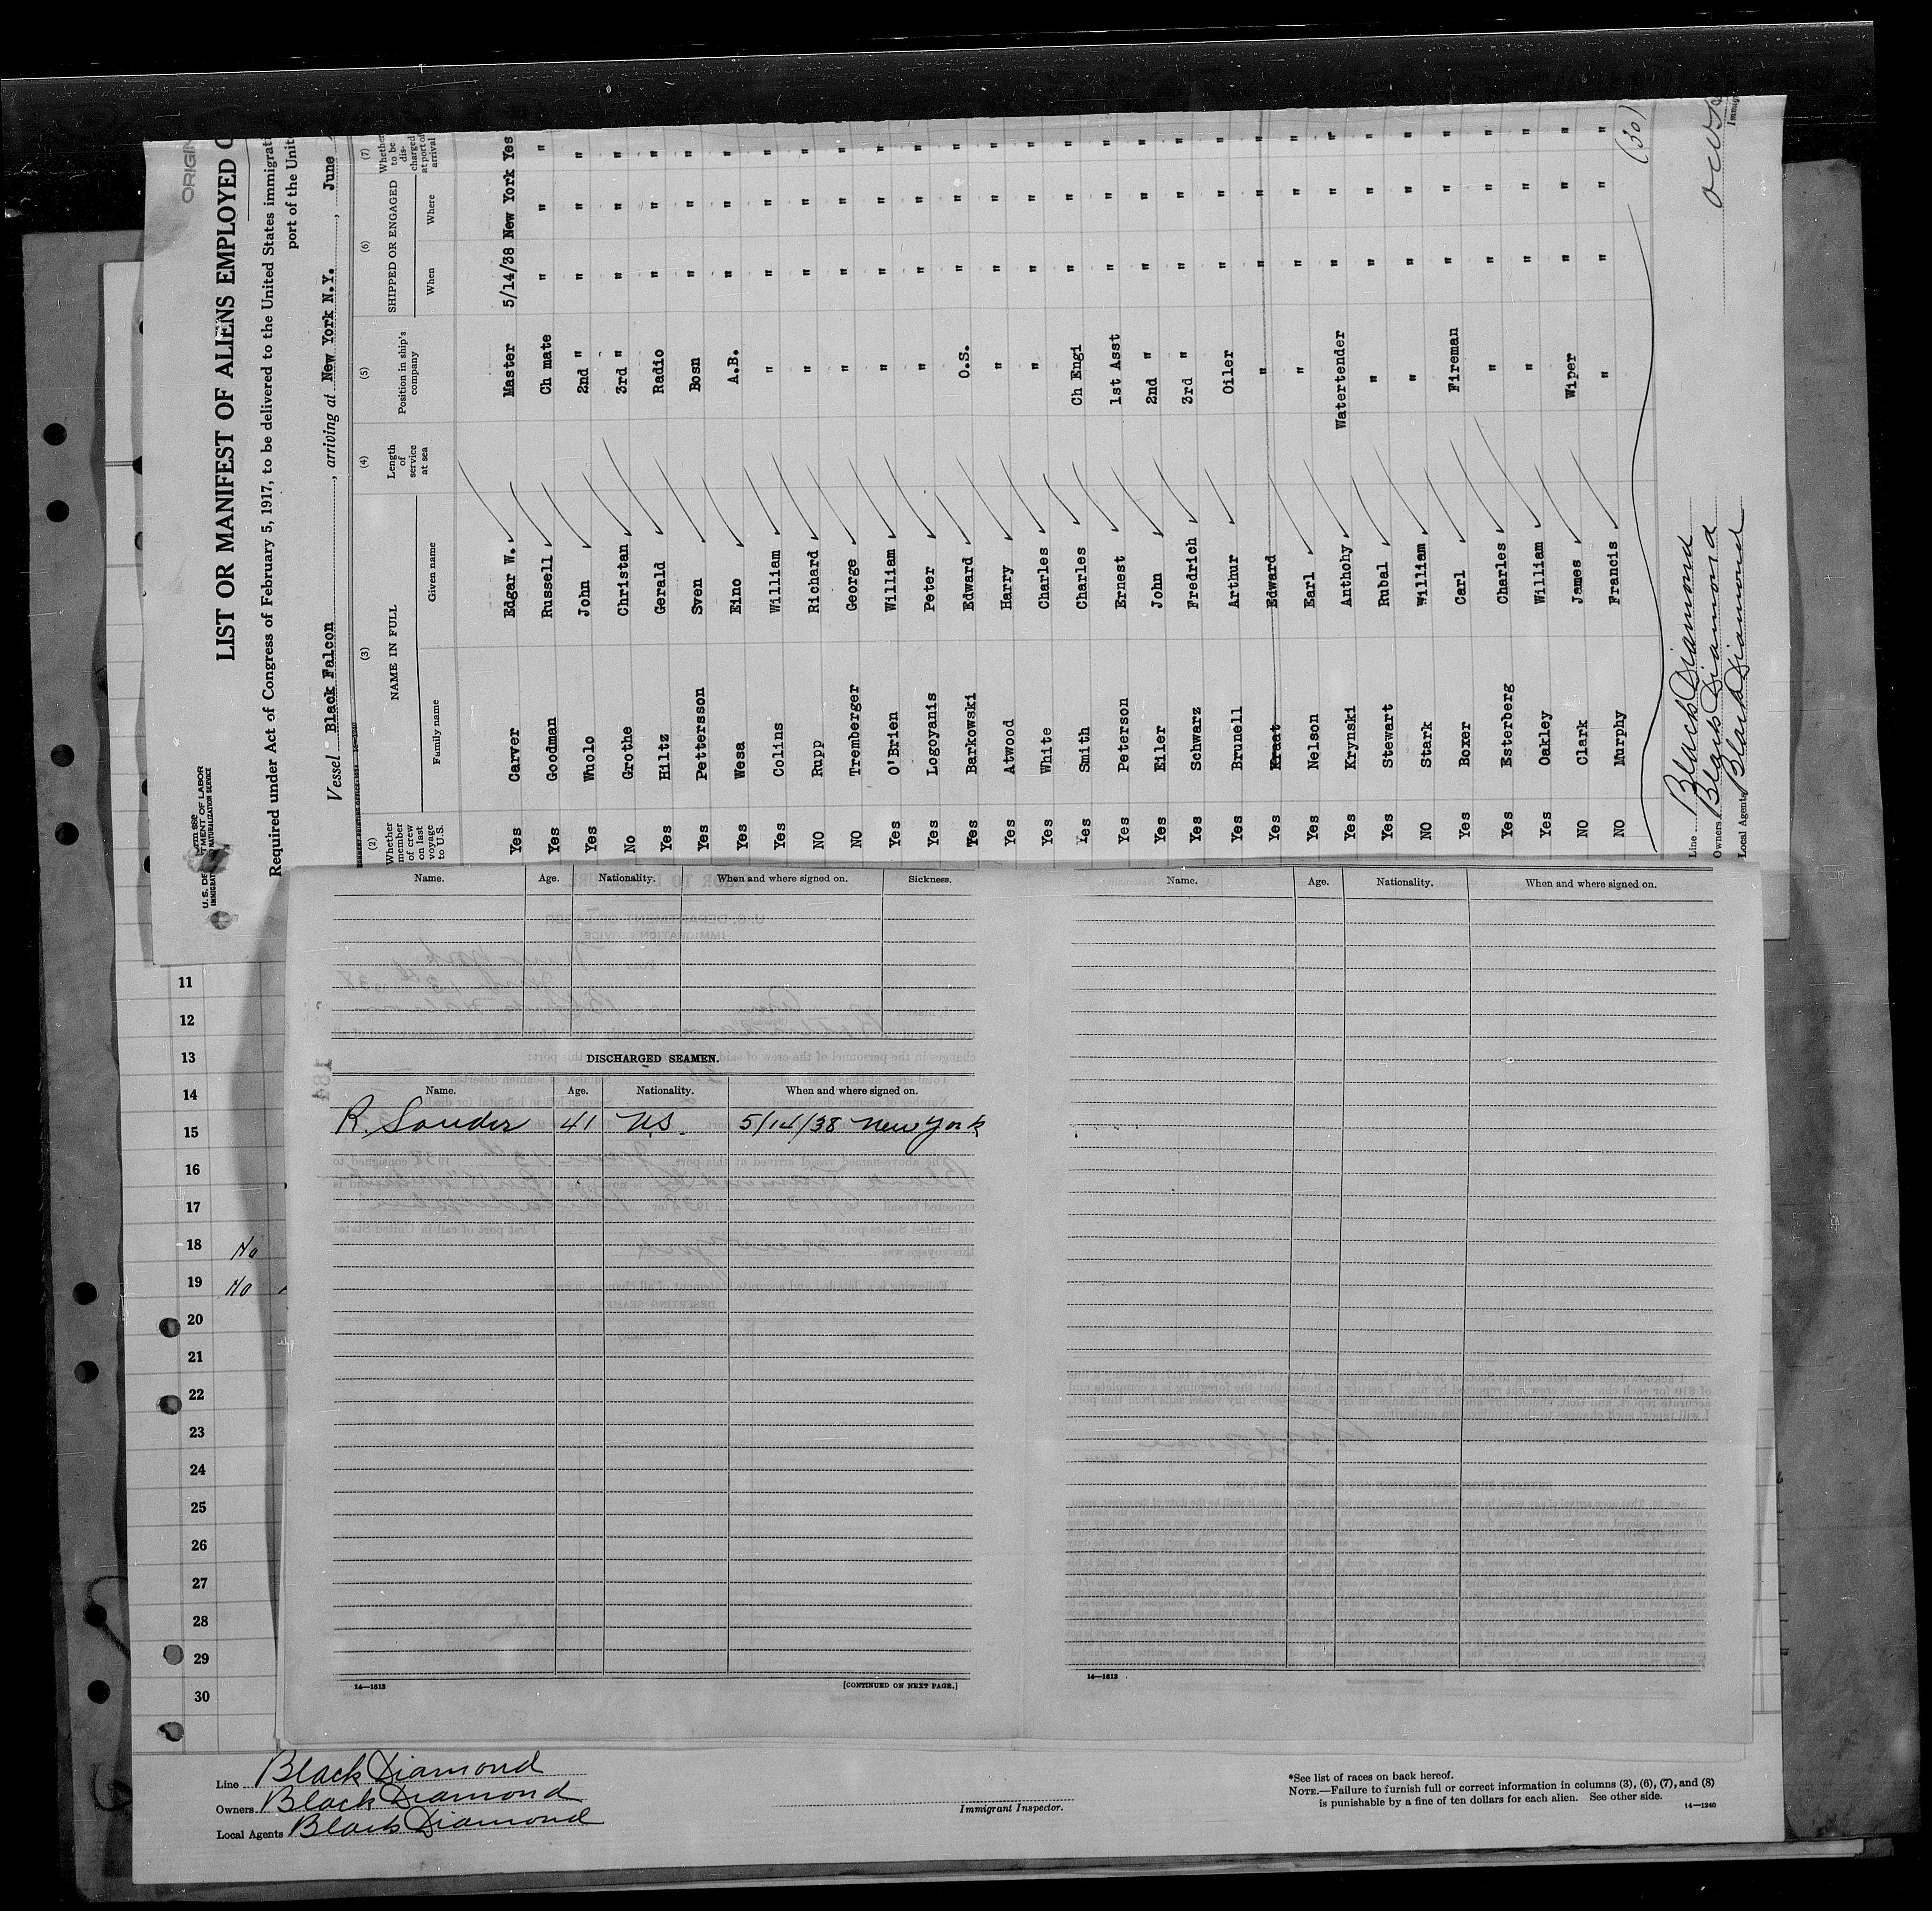 ORIGIN
LIST OR MANIFEST OF ALIENS EMPLOYED O
U. S. DE TMENT OF LABOR
IMMIGRAT NATURALIZATION SERVICE
Required under Act of Congress of February 5, 1917, to be delivered to the United States immigrat
port of the Unite
Vessel Black Falcon , arriving at New York N.Y. , June
(2) (3) (4) (5) (6) (7)
Whether member of crew on last voyage to U.S. NAME IN FULL Length of service at sea Position in ship's company SHIPPED OR ENGAGED Whether to be discharged at port of arrival
Family name Given name When Where
Yes Carver Edgar W. Master 5/14/38 New York Yes
Yes Goodman Russell Ch mate " " "
Yes Wuolo John 2nd " " " "
No Grothe Christan 3rd " " " "
Yes Hiltz Gerald Radio " " "
Yes Pettersson Sven Bosn " " "
Yes Wesa Eino A.B. " " "
Yes Colins William " " " "
NO Rupp Richard " " " "
NO Tremberger George " " " "
Yes O'Brien William " " " "
Yes Logoyanis Peter " " " "
Yes Barkowski Edward O.S. " " "
Yes Atwood Harry " " " "
Yes White Charles " " " "
Yes Smith Charles Ch Engi " " "
Yes Peterson Ernest 1st Asst " " "
Yes Eiler John 2nd " " " "
Yes Schwarz Fredrich 3rd " " " "
Yes Brunell Arthur Oiler " " "
Yes Kraat Edward " " " "
Yes Nelson Earl " " " "
Yes Krynski Anthohy Watertender " " "
Yes Stewart Rubal " " " "
NO Stark William " " " "
Yes Boxer Carl Fireman " " "
Yes Esterberg Charles " " " "
Yes Oakley William " " " "
NO Clark James Wiper " " "
NO Murphy Francis " " " "
(30)
Line Black Diamond
Owners Black Diamond
Local Agents Black Diamond
Immig
Name. Age. Nationality. When and where signed on. Sickness.
DISCHARGED SEAMEN.
Name. Age. Nationality. When and where signed on.
R. Souder 41 U.S. 5/14/38 New York
14—1613 [CONTINUED ON NEXT PAGE.]
Name. Age. Nationality. When and where signed on.
14—1613
11
12
13
14
15
16
17
18 No
19 No
20
21
22
23
24
25
26
27
28
29
30
Line Black Diamond
Owners Black Diamond
Local Agents Black Diamond
Immigrant Inspector.
*See list of races on back hereof.
NOTE.—Failure to furnish full or correct information in columns (3), (6), (7), and (8)
is punishable by a fine of ten dollars for each alien. See other side.
14—1240